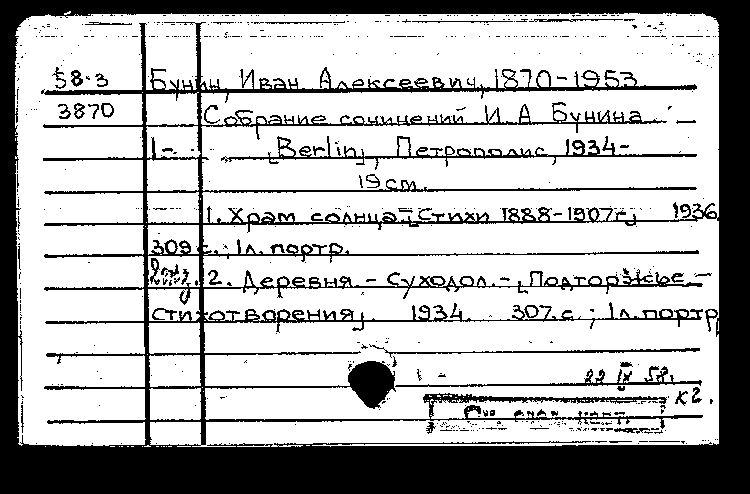 58-3 Бунин, Иван Алексеевич, 1870-1953
3870 Собрание сочинений И. А Бунина.
1- [Berlin], Петрополис, 1934-
19cm.
1. Храм солнца-[Стихи 1888-1907г] 1936
309 с.; 1л. портр.
2. Деревня. - Суходол. - [Подторжье. -
Стихотворения]. 1934. 307.с.; 1л. портр
22 IX 58.
К2.